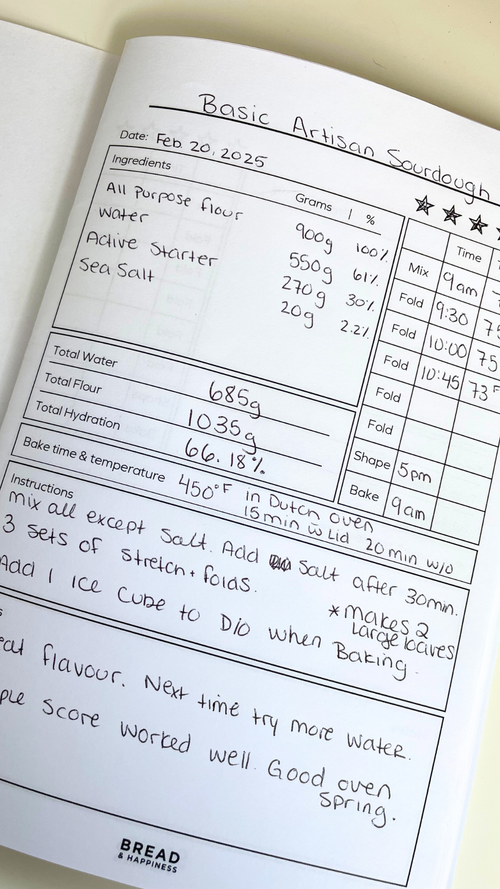 Basic Artisan Sourdough
Date: Feb 20, 2025
Ingredients Grams | %
All Purpose flour 900g 100%
Water 550g 61%
Active Starter 270g 30%
Sea Salt 20g 2.2%
Time
Mix 9am
Fold 9:30 75
Fold 10:00 75
Fold 10:45 73F
Fold
Fold
Shape 5pm
Bake 9am
Total Water 685g
Total Flour 1035g
Total Hydration 66.18%
Bake time & temperature 450°F in Dutch oven
15min w Lid 20min w/o
Instructions
mix all except Salt. Add Salt after 30min.
3 sets of stretch + folds.
*makes 2
Large loaves
Add 1 Ice Cube to D/O when Baking.
flavour. Next time try more water.
Score worked well. Good oven
spring.
BREAD
& HAPPINESS